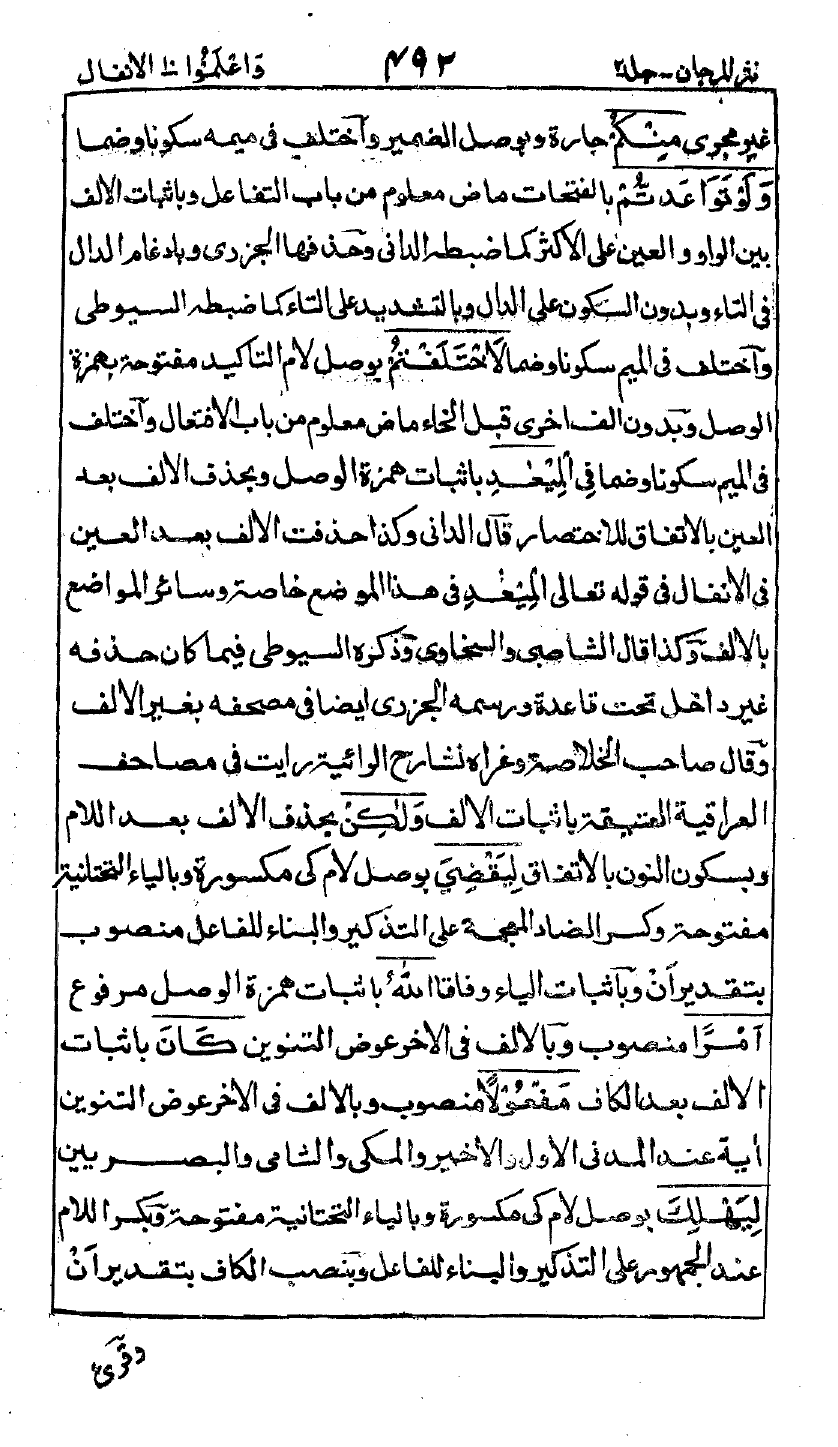 نثر المرجان - جلد ٢ ٤٩٢ وَاعْلَمُوْا ١٠ الانفال
غير مجرى مِنْكُمْ جارة وبوصل الضمير وآختلف فى ميمه سكونا وضما
وَلَوْ تَوَاعَدتُّمْ بالفتحات ماض معلوم من باب التفاعل وباثبات الالف
بين الواو والعين على الاكثر كما ضبطه الدانى وحذفها الجزرى وبادغام الدال
فى التاء وبدون السكون على الدال وبالتشديد على التاء كما ضبطه السيوطى
وآختلف فى الميم سكونا وضما لَاخْتَلَفْتُمْ بوصل لام التاكيد مفتوحة بهمزة
الوصل وبدون الف اخرى قبل الخاء ماض معلوم من باب الافتعال وآختلف
فى الميم سكونا وضما فِى الْمِيْعٰدِ باثبات همزة الوصل وبحذف الالف بعد
العين بالاتفاق للاختصار قال الدانى وكذا حذفت الالف بعد العين
فى الانفال فى قوله تعالى الْمِيْعٰدِ فى هذا الموضع خاصة وسائر المواضع
بالالف وَكذا قال الشاطبى والسخاوى وَذكره السيوطى فيما كان حذفه
غير داخل تحت قاعدة ورسمه الجزرى ايضا فى مصحفه بغير الالف
وَقال صاحب الخلاصة وعزاه لشارح الرائية رايت فى مصاحف
العراقية العتيقة باثبات الالف وَلٰكِنْ بحذف الالف بعد اللام
وبسكون النون بالاتفاق لِيَقْضِيَ بوصل لام كى مكسورة وبالياء التحتانية
مفتوحة وكسر الضاد المعجمة على التذكير والبناء للفاعل منصوب
بتقدير اَنْ وَباثبات الياء وفاقا اللهُ باثبات همزة الوصل مرفوع
اَمْرًا منصوب وَبالالف فى الاخر عوض التنوين كَانَ باثبات
الالف بعد الكاف مَفْعُوْلًا منصوب وبالالف فى الاخر عوض التنوين
أية عند المدنى الاول والاخير والمكى والشامى والبصريين
لِيَهْلِكَ بوصل لام كى مكسورة وبالياء التحتانية مفتوحة وَبكسر اللام
عند الجمهور على التذكير والبناء للفاعل وَبنصب الكاف بتقدير اَنْ
وقرئ